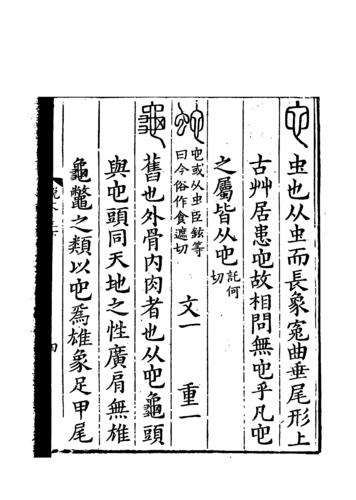 它虫也从虫而長象冤曲垂尾形上
古艸居患它故相問無它乎凡它
之屬皆从它託何切
蛇它或从虫臣鉉等曰今俗作食遮切
文一 重一
龜舊也外骨内肉者也从它龜頭
與它頭同天地之性廣肩無雄
龜鼈之類以它爲雄象足甲尾